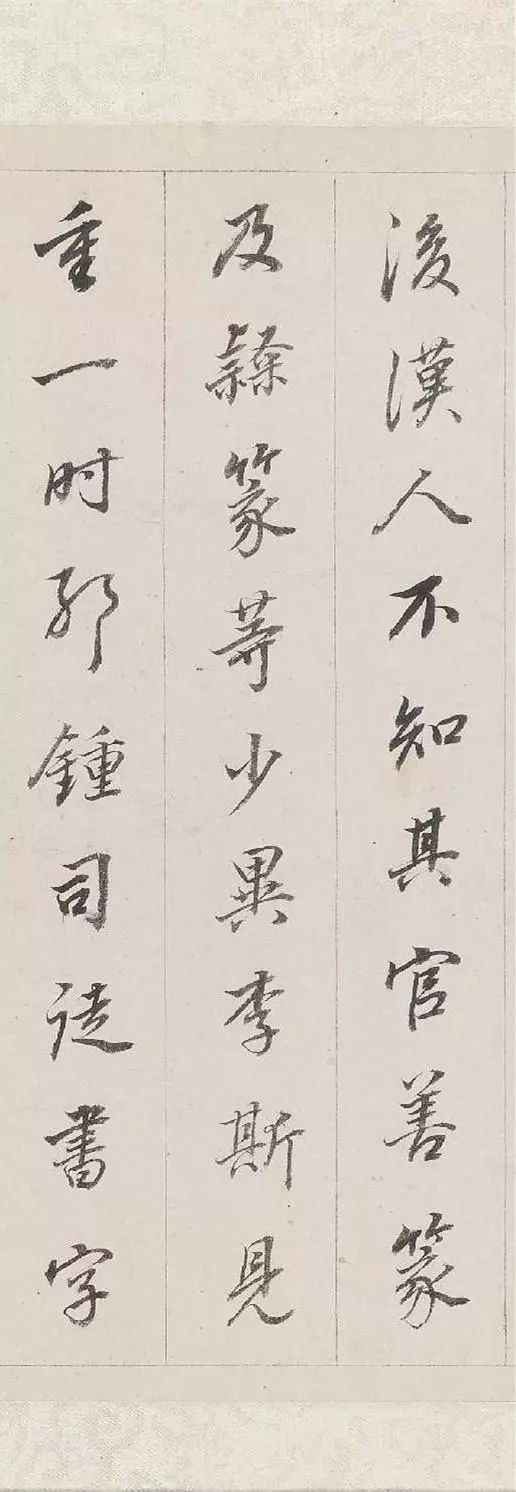 後漢人不知其官善篆
及隸篆等少異李斯見
重一时邪鍾司徒書字